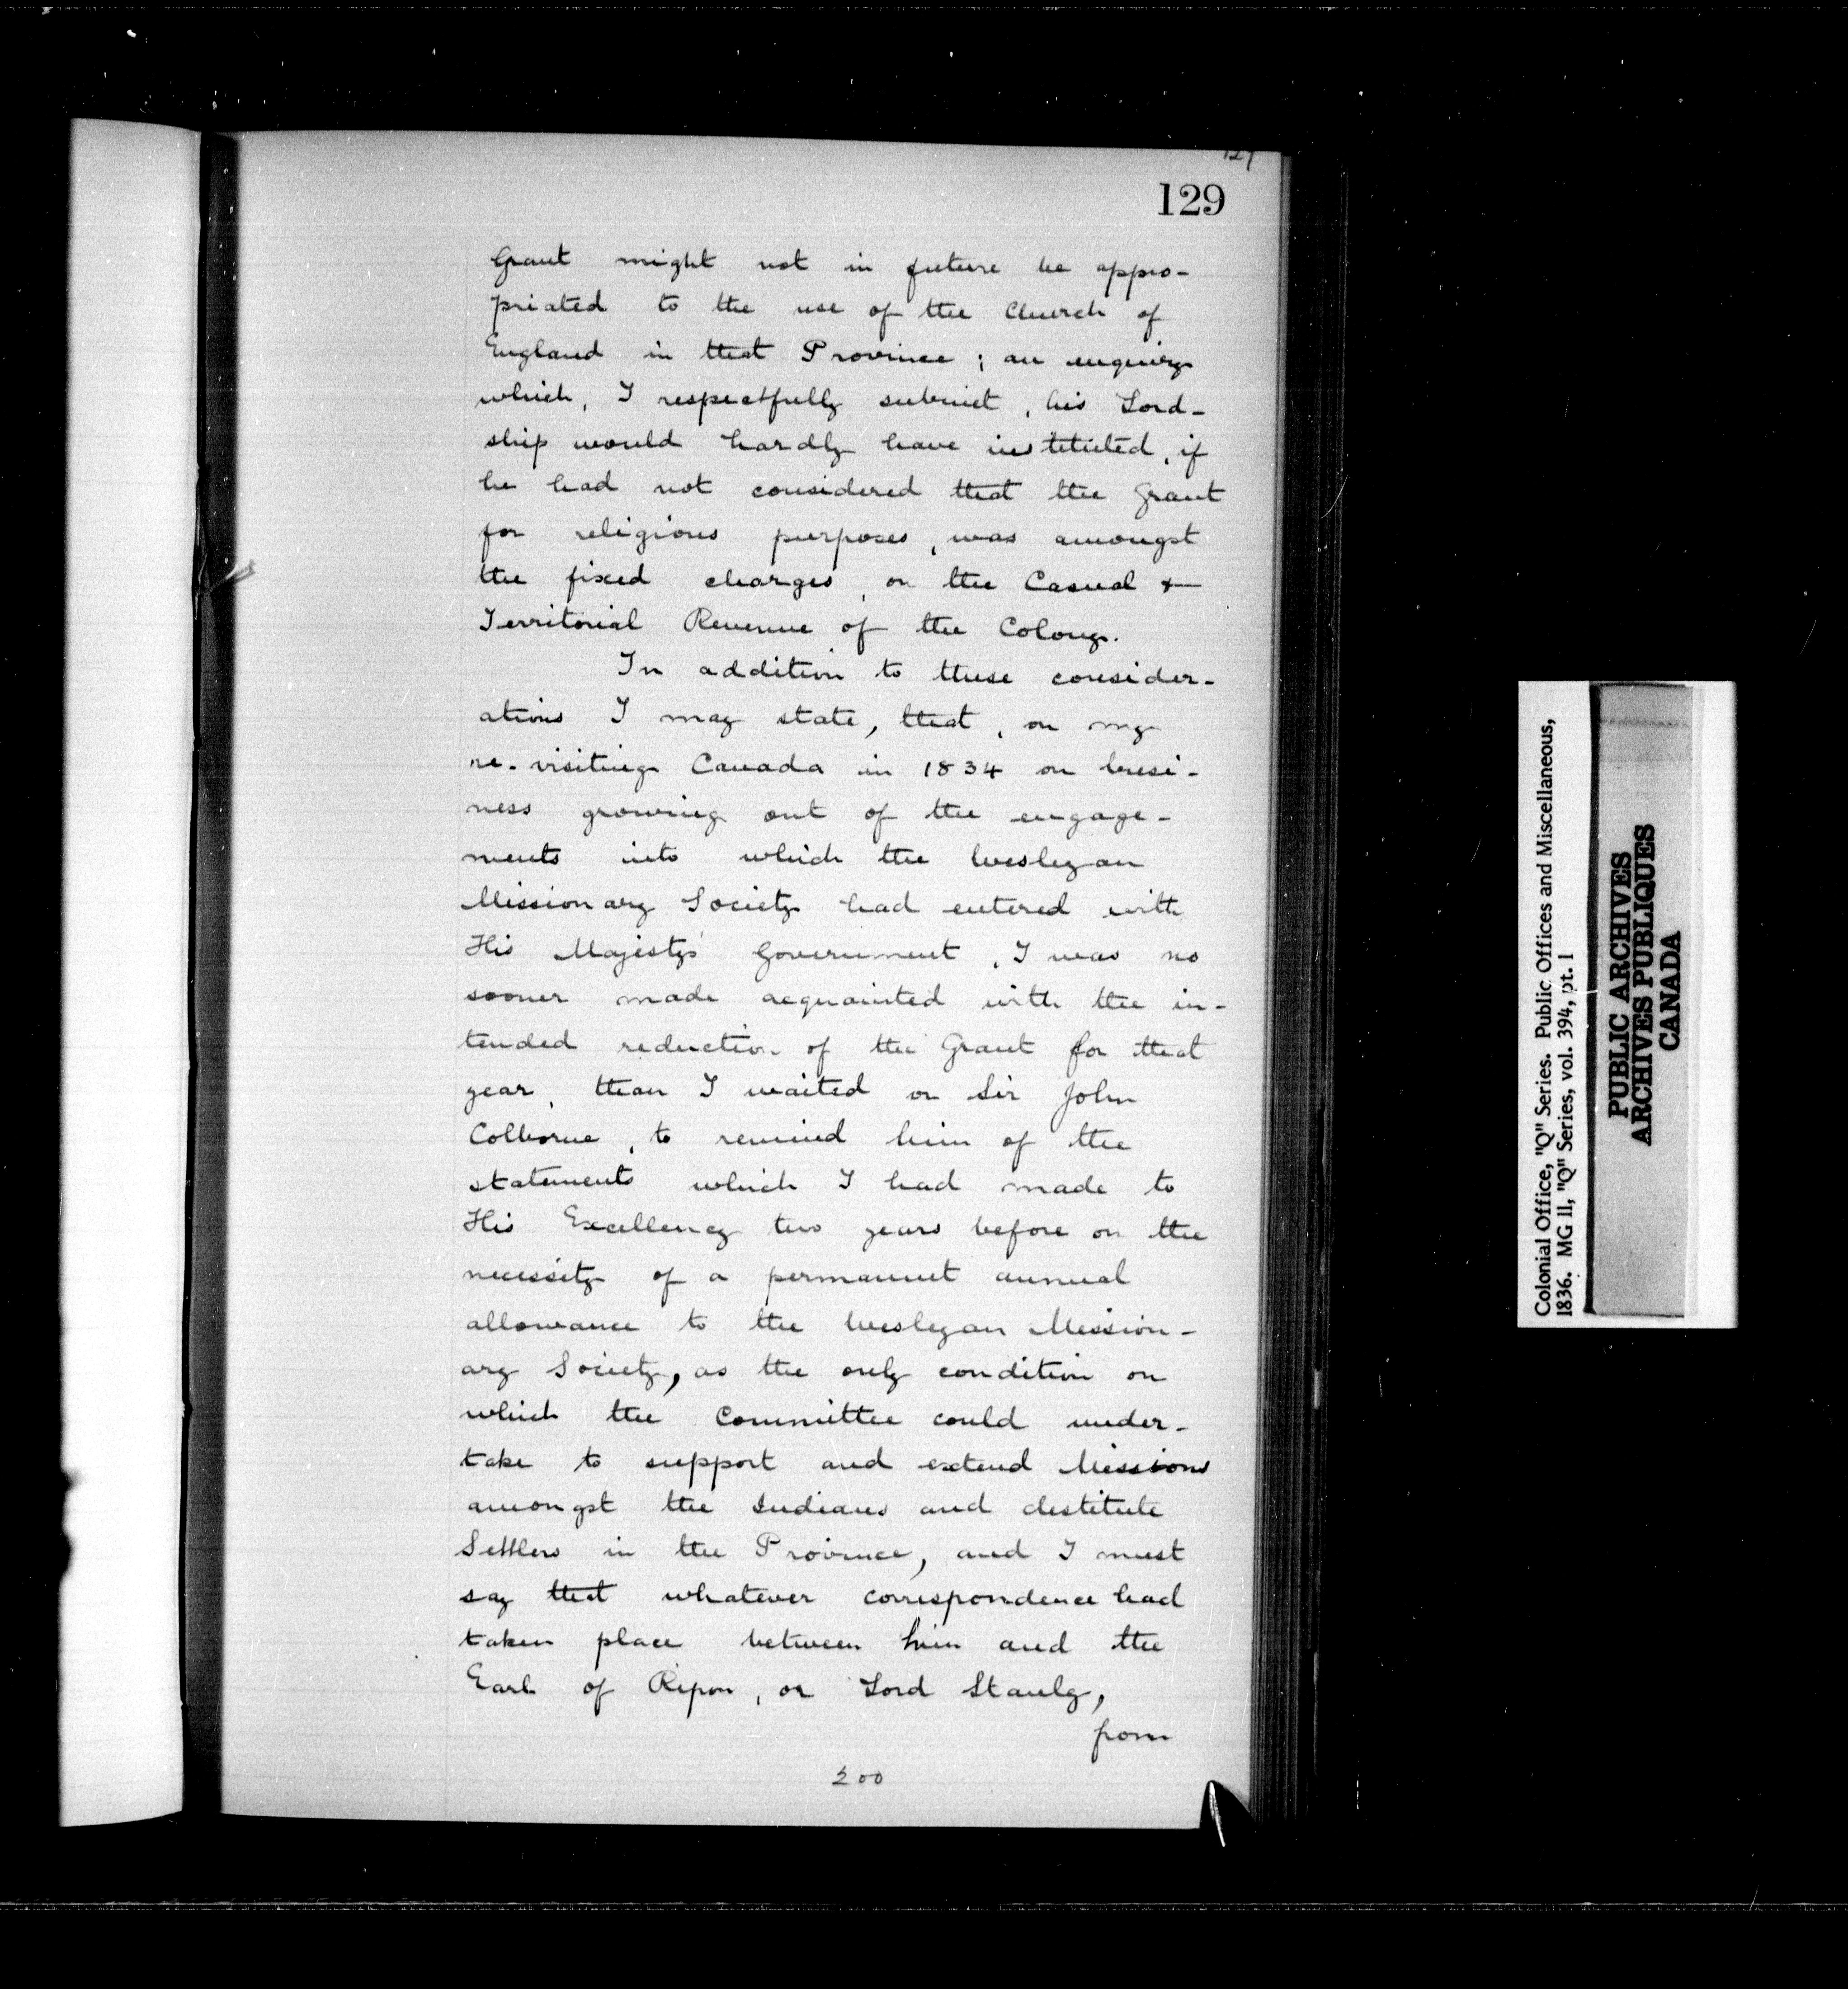 129
Grant might not in future be appro-
priated to the use of the Church of
England in that Province; an enquiry
which, I respectfully submit, his Lord-
ship would hardly have instituted, if
he had not considered that the Grant
for religious purposes, was amongst
the fixed charges, on the Casual &
Territorial Revenue of the Colony.
In addition to these consider-
ations I may state, that, on my
re-visiting Canada in 1834 on busi-
ness growing out of the engage-
ments into which the Wesleyan
Missionary Society had entered with
His Majesty's Government, I was no
sooner made acquainted with the in-
tended reduction of the Grant for that
year, than I waited on Sir John
Colborne, to remind him of the
statements which I had made to
His Excellency two years before on the
necessity of a permanent annual
allowance to the Wesleyan Mission-
ary Society, as the only condition on
which the Committee could under-
take to support and extend Missions
amongst the Indians and destitute
Settlers in the Province, and I must
say that whatever correspondence had
taken place between him and the
Earl of Ripon, or Lord Stanly,
from
200
Colonial Office, "Q" Series. Public Offices and Miscellaneous,
1836. MG 11, "Q" Series, vol. 394, pt. 1
PUBLIC ARCHIVES
ARCHIVES PUBLIQUES
CANADA